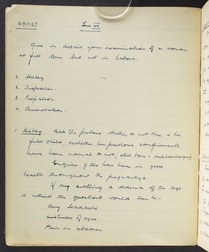 Give in detail your examination of a woman
at full term but not in labour.
1. History
2. Inspection.
3. Palpation
4. Auscultation.
1. History Ask the patient whether or not this is her
first child, whether her previous confinements
have been normal or not, still born - miscarriages)
Enquire if she has been in good
health throughout the pregnancy.
If any swelling or oedema of the legs
is noticed the questions would be :-
Any headache
Pain in abdomen